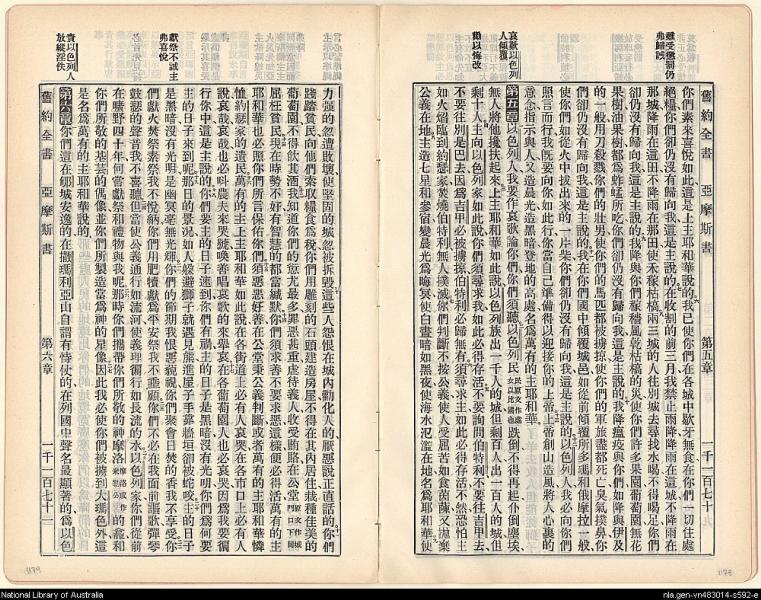 舊約全書 亞摩斯書 第五章 一千一百七十
雖受懲罰仍弗歸誠
哀歎以色列人傾覆
勸以悔改
你們素來喜悅如此這是上主耶和華說的我已使你們在各城中歇牙無食在你們一切住處
絕糧你們卻仍沒有歸向我這是主說的在收割的前三月我禁止雨降降雨在這城不降雨在
那城降雨在這田不降雨在那田使禾稼枯槁兩三城的人往別城去尋找水喝不得喝足你們
卻仍沒有歸向我這是主說的我降與你們稼穡風乾枯槁的災使你們許多果園葡萄園無花
果樹油果樹都爲蚱蜢所吃你們卻仍沒有歸向我這是主說的我降瘟疫與你們如降與伊及
的一般用刀殺戮你們的壯男使你們的馬匹都被擄掠使你們的軍旅盡都死亡臭氣撲鼻你
們卻仍沒有歸向我這是主說的我在你們國中傾覆城邑如從前傾覆所多瑪和俄摩拉一般
使你們如從火中拔出來的一片柴你們卻仍沒有歸向我這是主說的以色列人我必向你們
照言而行我旣要向你如此行你當自己準備得以迎接你的上帝上帝創山造風將人心裏的
意念指示與人又造晨光造黑暗登地的高處名爲萬有的主耶和華
第五章以色列人我要作哀歌論你們你們須聽以色列民跌倒不得再起仆倒塵埃
無人將他攙扶起來上主耶和華如此說以色列族出一千人的城但剩百人出一百人的城但
剩十人主向以色列家如此說你們須尋求我如此必得存活不要詢問伯特利不要往吉甲去
不要往別是巴去因爲吉甲必被擄掠伯特利必歸無有須尋求主如此必得存活不然恐怕主
如火焰臨到約瑟家焚燒伯特利無人撲滅你們判斷不按公義使人受屈苦如食茵蔯又拋棄
公義在地主造七星和參宿變晨光爲晦冥使白晝暗如黑夜使海水氾濫在地名爲耶和華使
獻祭不誠主弗喜悅
責以色列人放縱淫佚
力強的忽遭敗壞使堅固的城忽被拆毀這些人怨恨在城內勸化人的厭惡說正直話的你們
踐踏貧民向他們索取糧食爲稅你們用雕刻的石頭建造房屋不得在其內居住栽種佳美的
葡萄園不得飲其酒我知道你們的愆尤最多罪惡甚重虐待義人收受賄賂在公堂
屈枉貧民現在時勢不好有智慧的都當緘默你們須求善不要求惡這樣便必得活萬有的主
耶和華也必照你們所言保佑你們須惡惡好善在公堂秉公義判斷或者萬有的主耶和華憐
恤約瑟家的遺民萬有的主上主耶和華如此說在各街道上必有人哀哭在各市口上必有人
說哀哉哀哉也必呼農夫來哭號喚善唱哀歌的來舉哀在各葡萄園人也必哀哭因爲我要徧
行你中這是主說的你們要主的日子速到你們有禍主的日子是黑暗沒有光明你們爲何要
主的日子來到呢那日的景況如人躲避獅子就遇見熊進屋子手靠牆垣卻被蛇咬主的日子
是黑暗沒有光明是幽冥毫無光輝你們的節期我恨惡藐視你們聚會日焚的香我不享受你
們獻火焚祭素祭我不悅納你們用肥犢獻爲平安祭我不垂顧你們不必在我面前謳歌彈琴
鼓瑟的聲音我不喜聽但當使公義通行如流河使義理徧行如長流的水以色列家你們從前
在曠野四十年何嘗獻祭和禮物與我呢那時你們攜帶你們所敬的神摩洛的龕和
你們所敬的基芸的偶像並你們所製造當爲神的星像因此我必使你們被擄到大瑪色外這
是名爲萬有的主耶和華說的
第六章你們這在郇城安逸的在撒瑪利亞山自謂有恃使的在列國中聲名最顯著的爲以色
舊約全書 亞摩斯書 第六章 一千一百七十
1179
1178
National Library of Australia
nla.gen-vn483014-s592-e